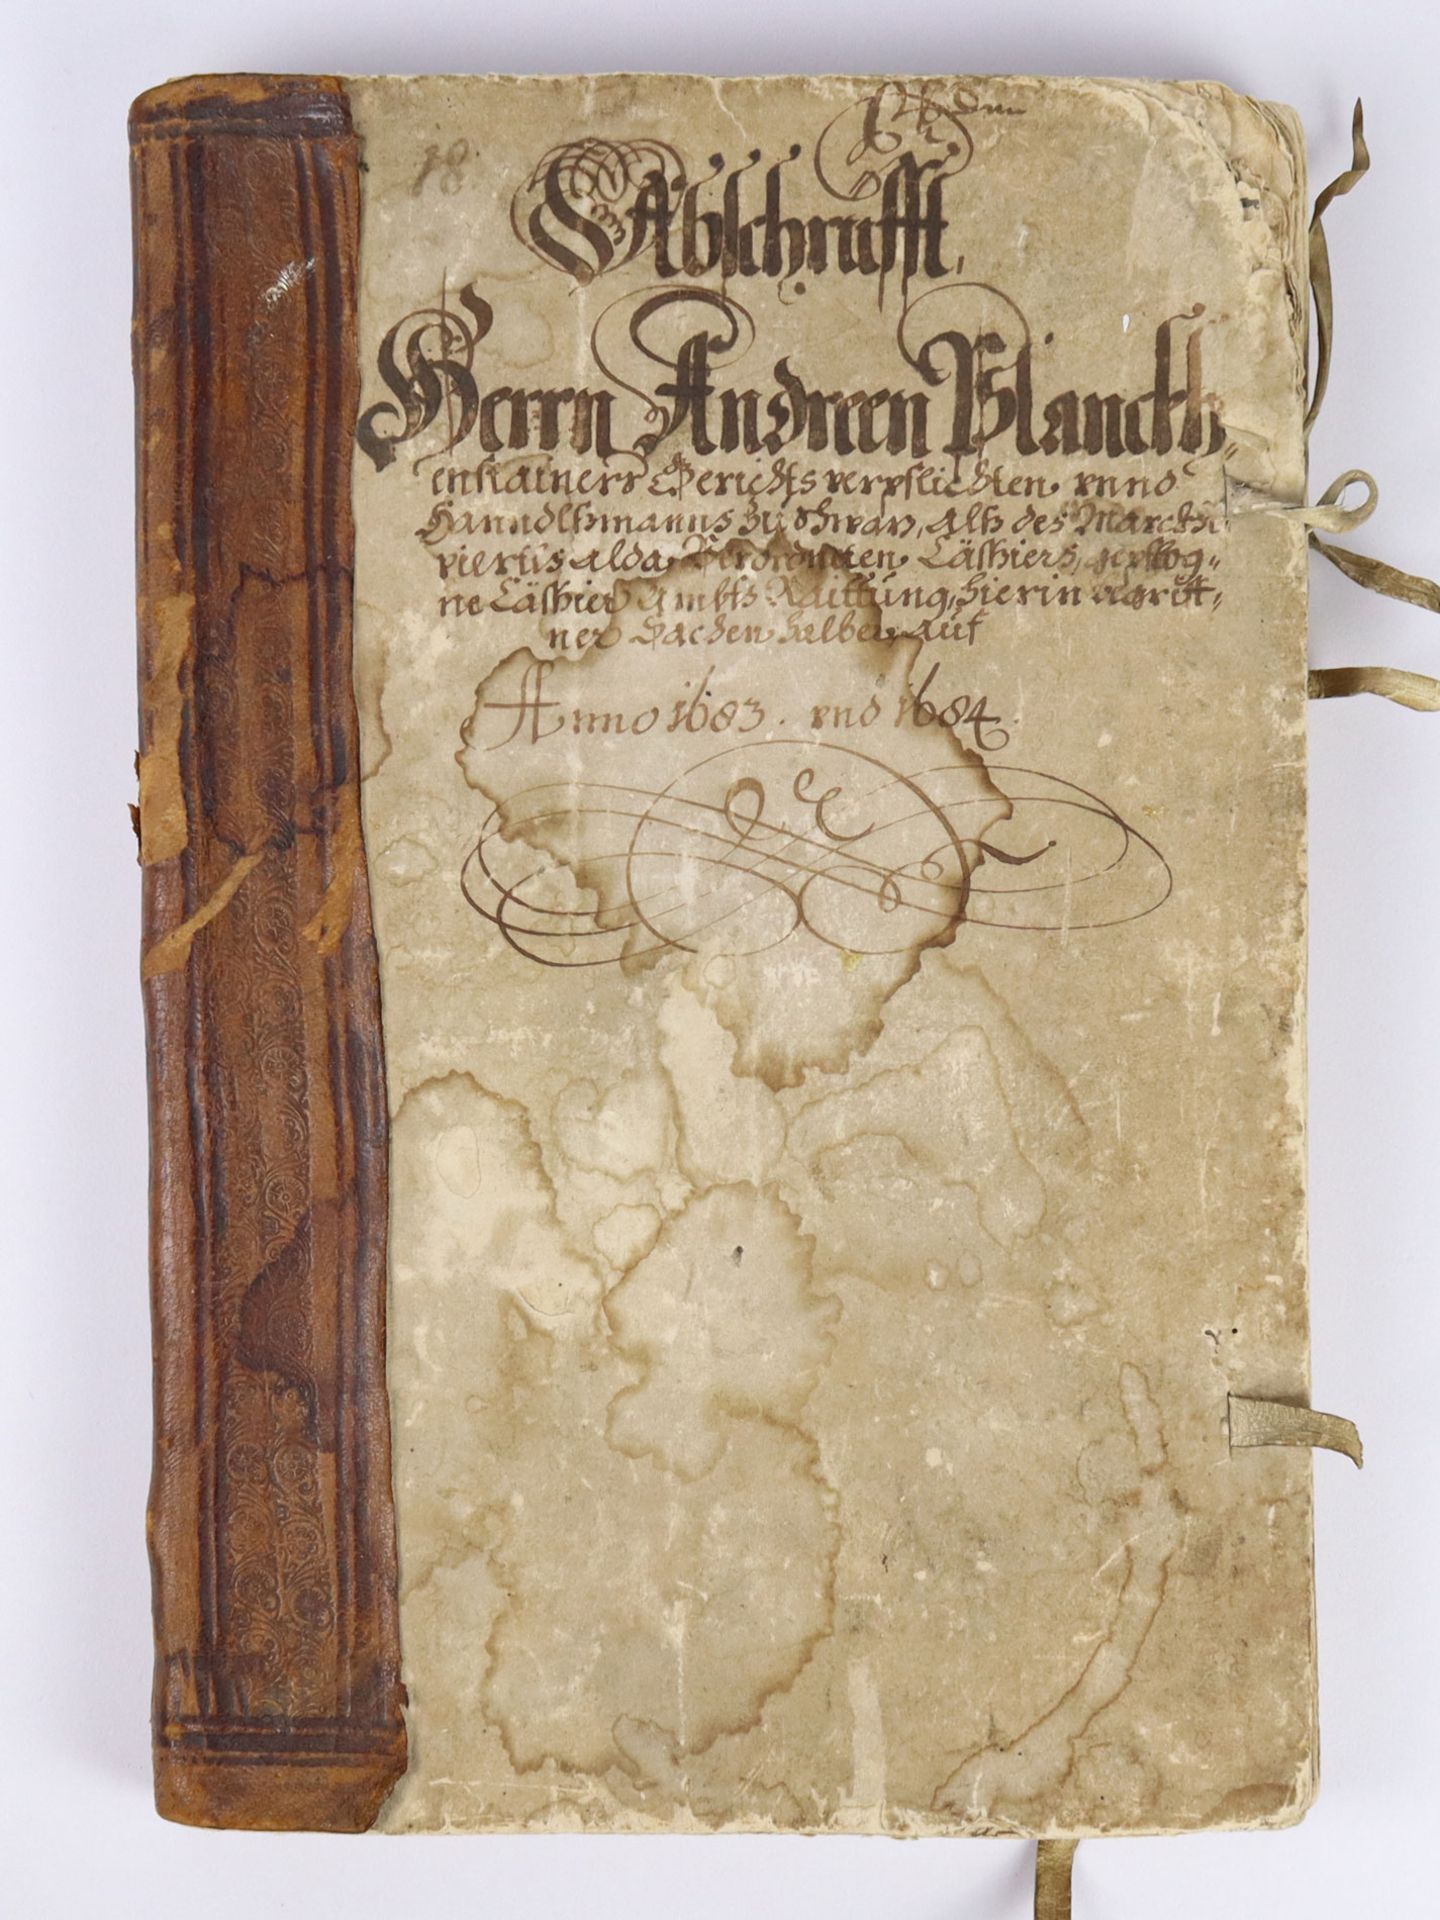 18.
Abschrifft,
Herrn Andreen Planckh-
enstainers Gerichts verpflichten unnd
Hanndlsmanns zu Schwaz, alß des Marckht
viertls alda Verordneten Cässiers, gepflog-
ne Cässier Ambts Raittung, hierin begrif-
ner Sachen halben auf
Anno 1683. und 1684.